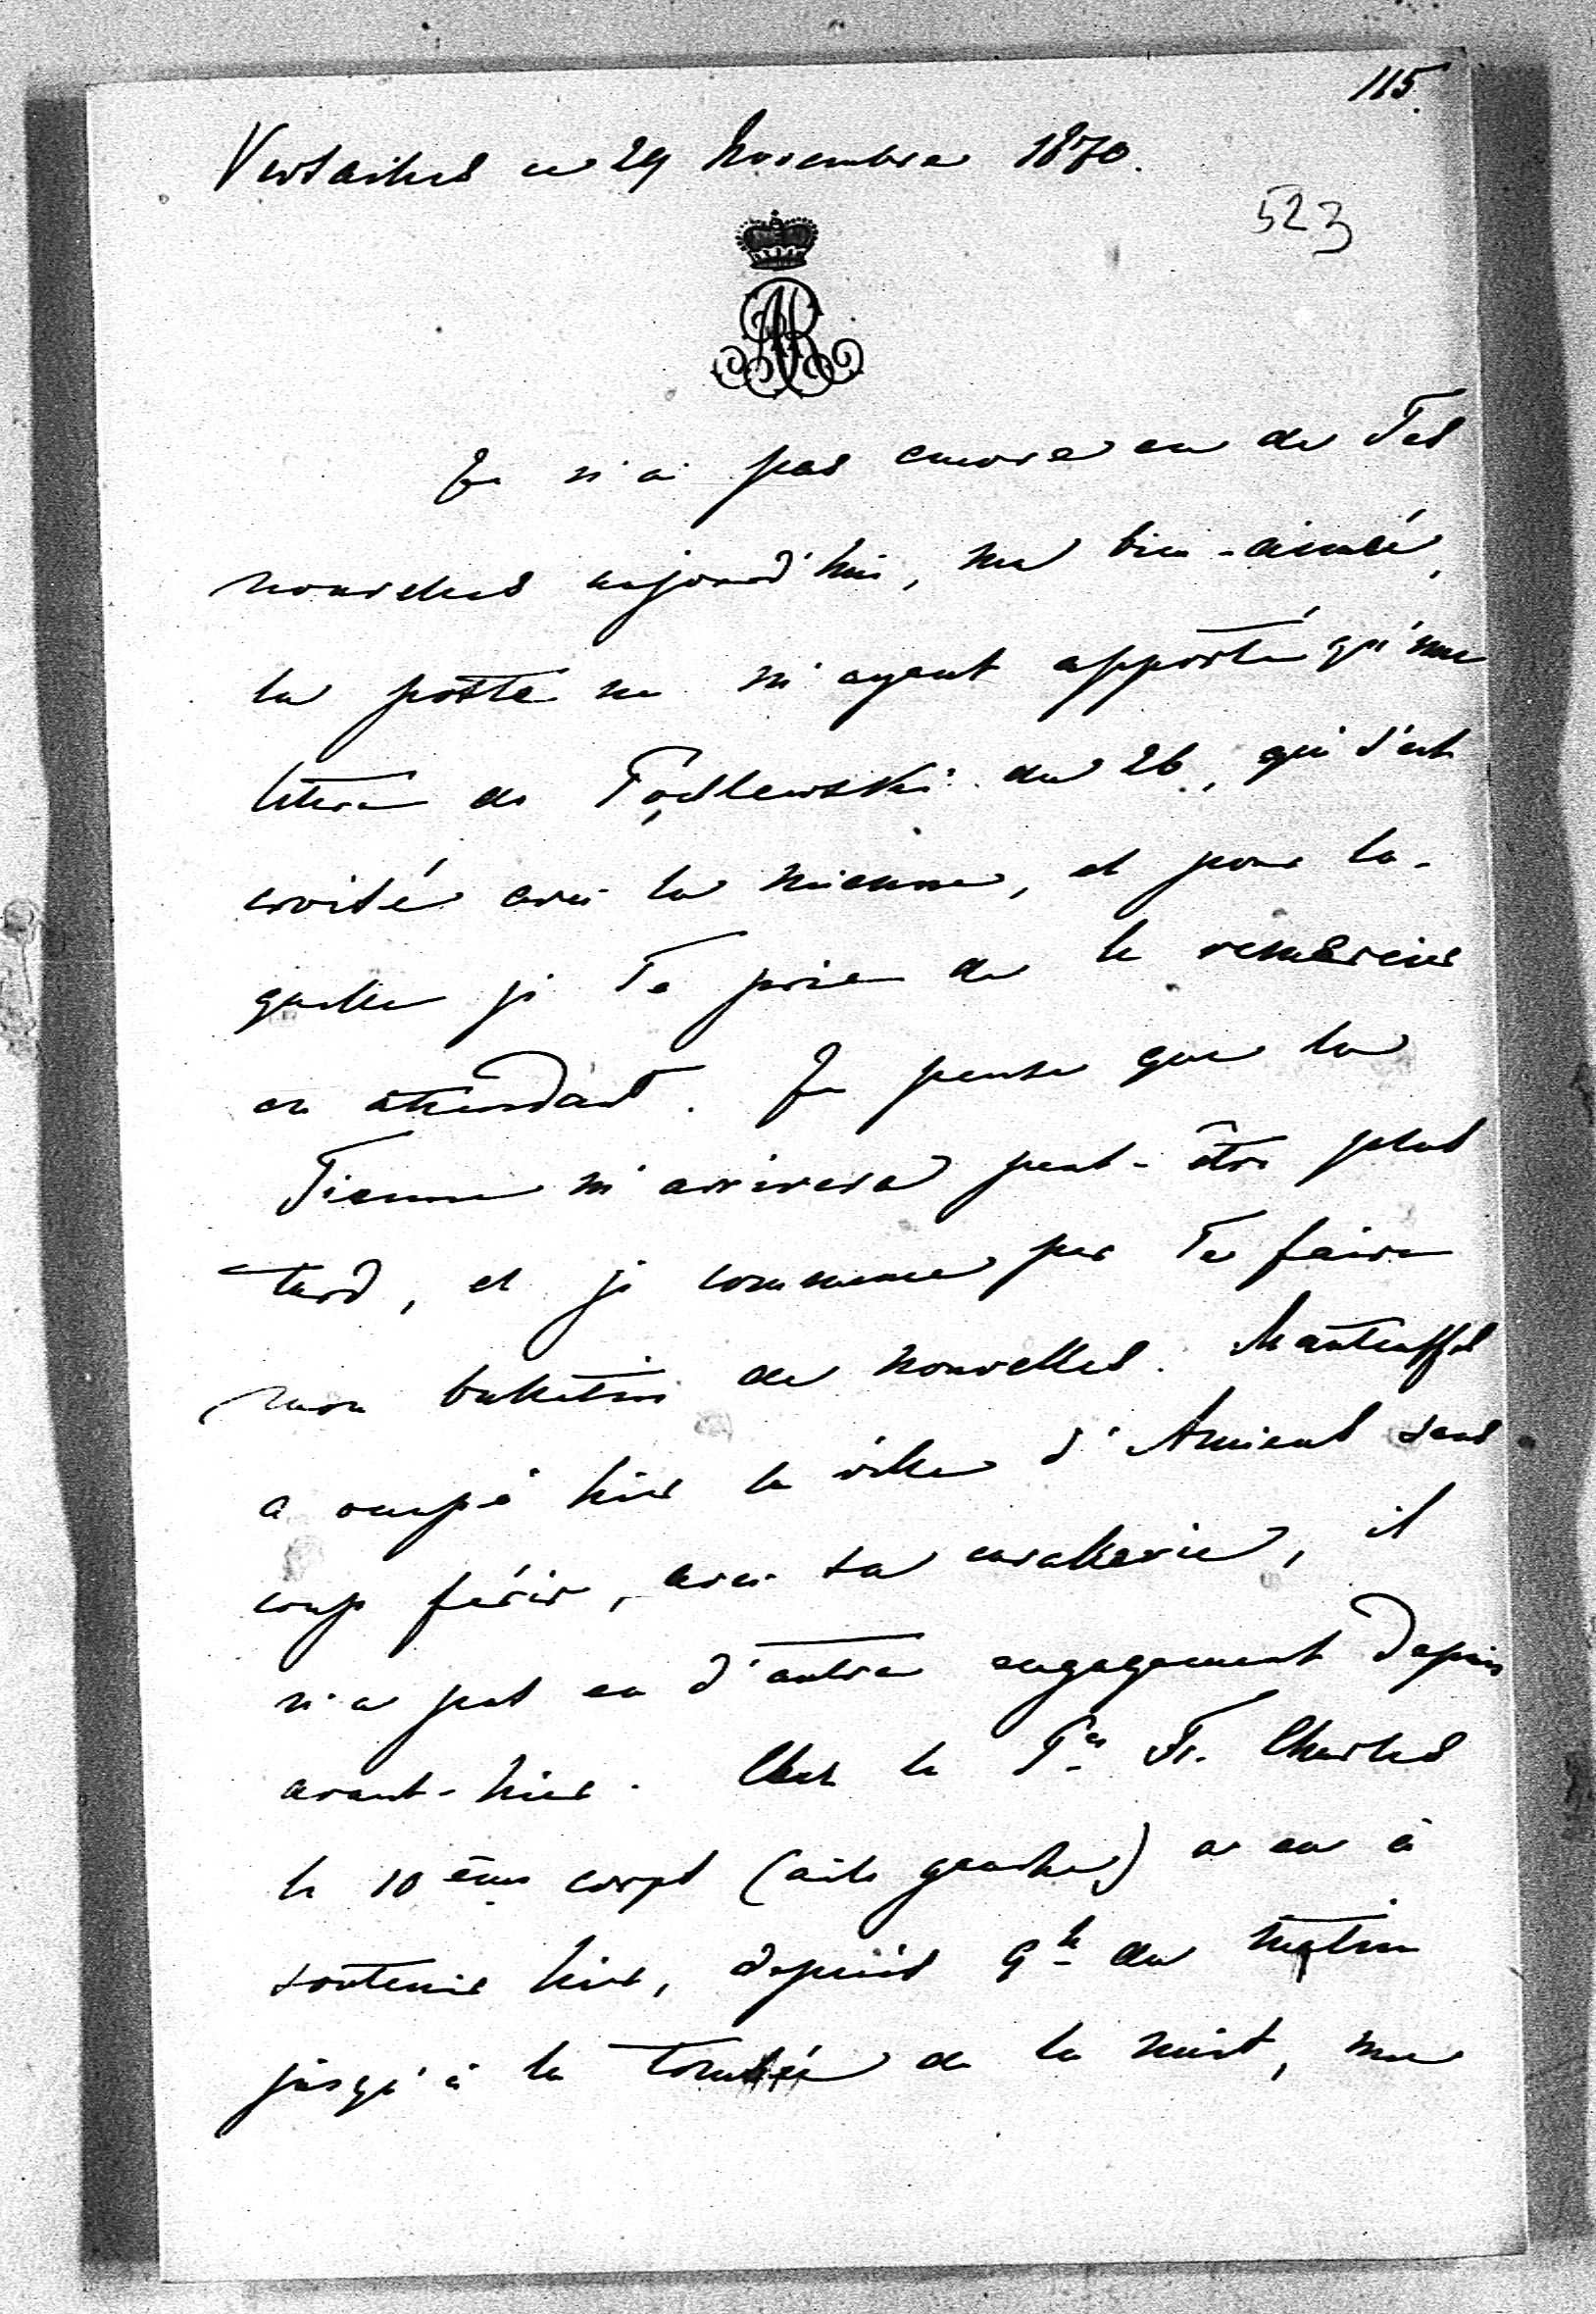 115.
Versailles ce 29 Novembre 1870.
523
AR
Je n'ai pas encore eu de Tes
nouvelles aujourd'hui, ma bien-aimée,
la poste ne m'ayant apporté qu'une
lettre de Podlewski du 26, qui s'est
croisée avec la mienne, et pour la-
quelle je Te prie de le remercier
en attendant. Je pense que la
Tienne m'arrivera peut-être plus
tard, et je commence par Te faire
mon bulletin de nouvelles. Manteuffel
a occupé hier la ville d'Amiens sans
coup férir, avec sa cavallerie, il
n'a pas eu d'autre engagement depuis
avant-hier. Chez le Pce Fr. Charles
le 10ème corps (aile gauche) a eu à
soutenir hier, depuis 9h du matin
jusqu'à la tombée de la nuit, une